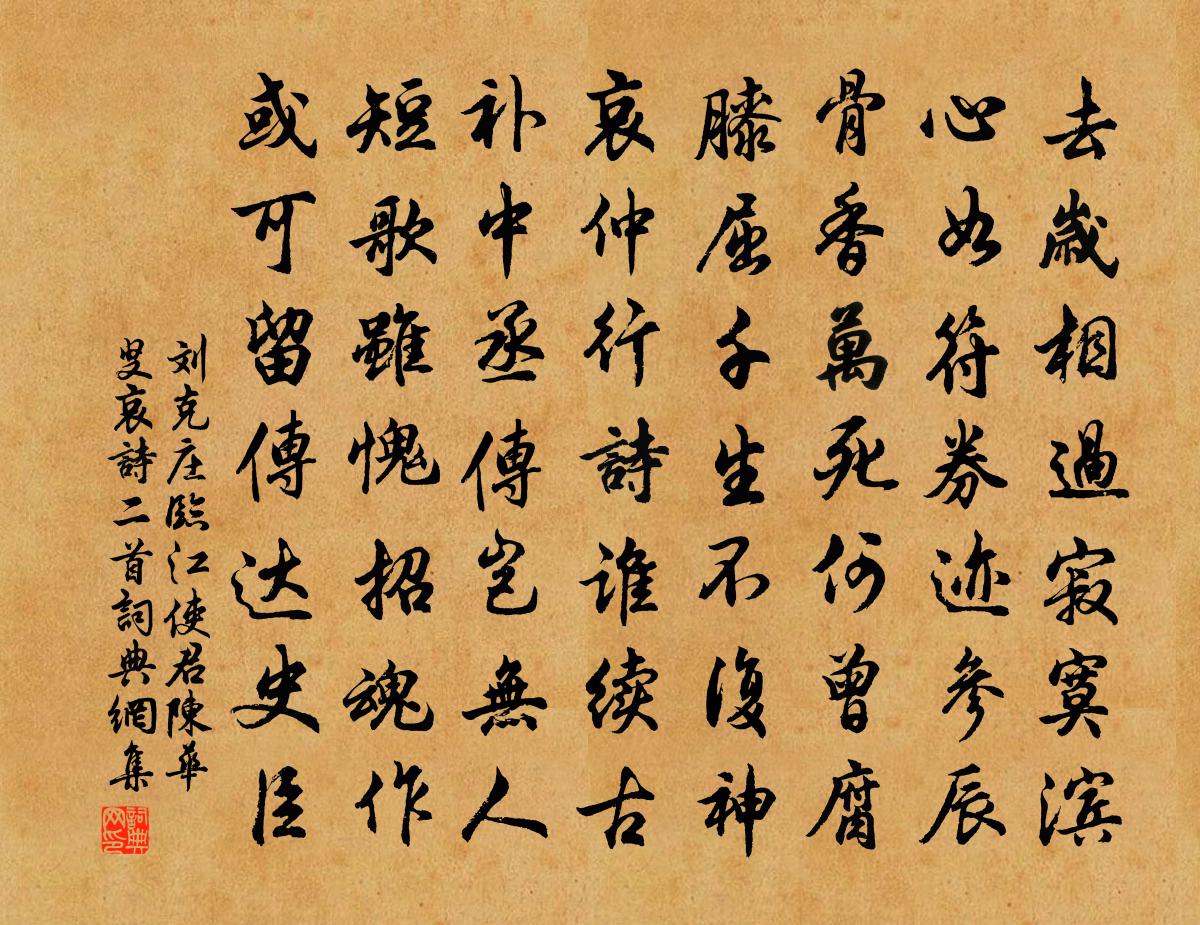 去歲相過寂寞滨
心如符券迹參辰
骨香萬死何曾腐
膝屈千生不復神
哀仲行詩谁续古
补中丞傳岂無人
短歌雖愧招魂作
或可留傳达史臣
刘克庄臨江使君陳華
叟哀詩二首詞典網集
詞典
网印